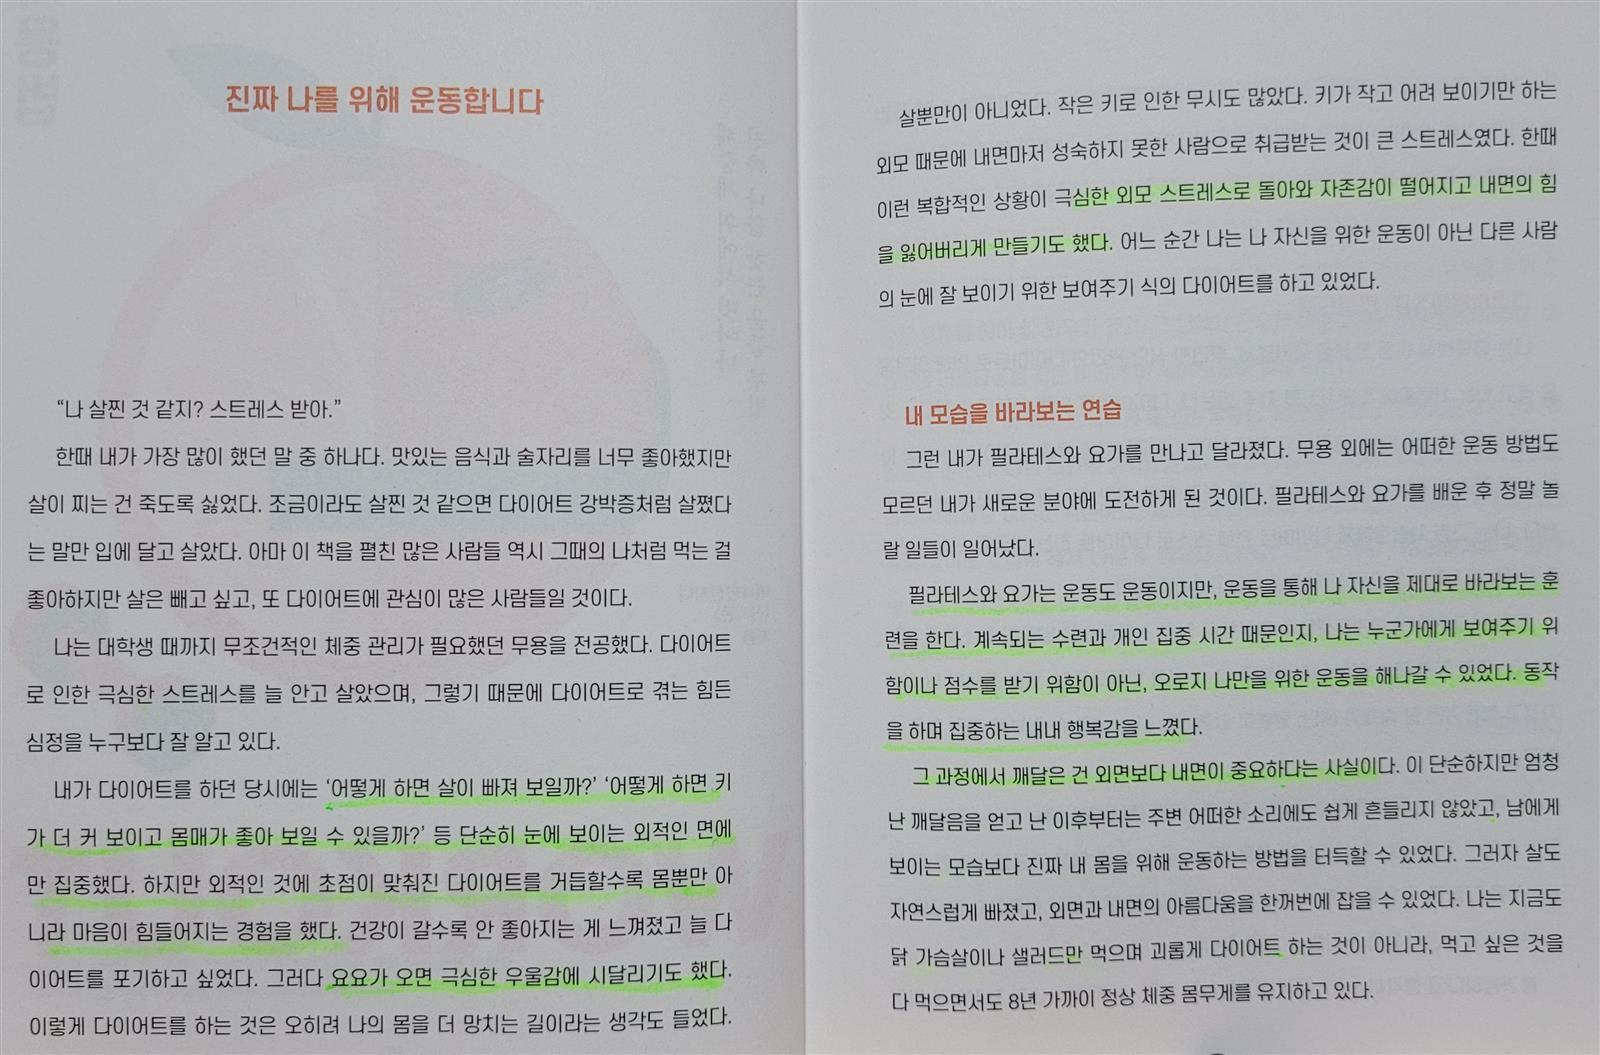 진짜 나를 위해 운동합니다
“나 살찐 것 같지? 스트레스 받아.”
한때 내가 가장 많이 했던 말 중 하나다. 맛있는 음식과 술자리를 너무 좋아했지만
살이 찌는 건 죽도록 싫었다. 조금이라도 살찐 것 같으면 다이어트 강박증처럼 살쪘다
는 말만 입에 달고 살았다. 아마 이 책을 펼친 많은 사람들 역시 그때의 나처럼 먹는 걸
좋아하지만 살은 빼고 싶고, 또 다이어트에 관심이 많은 사람들일 것이다.
나는 대학생 때까지 무조건적인 체중 관리가 필요했던 무용을 전공했다. 다이어트
로 인한 극심한 스트레스를 늘 안고 살았으며, 그렇기 때문에 다이어트로 겪는 힘든
심정을 누구보다 잘 알고 있다.
내가 다이어트를 하던 당시에는 ‘어떻게 하면 살이 빠져 보일까?’ ‘어떻게 하면 키
가 더 커 보이고 몸매가 좋아 보일 수 있을까?’ 등 단순히 눈에 보이는 외적인 면에
만 집중했다. 하지만 외적인 것에 초점이 맞춰진 다이어트를 거듭할수록 몸뿐만 아
니라 마음이 힘들어지는 경험을 했다. 건강이 갈수록 안 좋아지는 게 느껴졌고 늘 다
이어트를 포기하고 싶었다. 그러다 요요가 오면 극심한 우울감에 시달리기도 했다.
이렇게 다이어트를 하는 것은 오히려 나의 몸을 더 망치는 길이라는 생각도 들었다.
살뿐만이 아니었다. 작은 키로 인한 무시도 많았다. 키가 작고 어려 보이기만 하는
외모 때문에 내면마저 성숙하지 못한 사람으로 취급받는 것이 큰 스트레스였다. 한때
이런 복합적인 상황이 극심한 외모 스트레스로 돌아와 자존감이 떨어지고 내면의 힘
을 잃어버리게 만들기도 했다. 어느 순간 나는 나 자신을 위한 운동이 아닌 다른 사람
의 눈에 잘 보이기 위한 보여주기 식의 다이어트를 하고 있었다.
내 모습을 바라보는 연습
그런 내가 필라테스와 요가를 만나고 달라졌다. 무용 외에는 어떠한 운동 방법도
모르던 내가 새로운 분야에 도전하게 된 것이다. 필라테스와 요가를 배운 후 정말 놀
랄 일들이 일어났다.
필라테스와 요가는 운동도 운동이지만, 운동을 통해 나 자신을 제대로 바라보는 훈
련을 한다. 계속되는 수련과 개인 집중 시간 때문인지, 나는 누군가에게 보여주기 위
함이나 점수를 받기 위함이 아닌, 오로지 나만을 위한 운동을 해나갈 수 있었다. 동작
을 하며 집중하는 내내 행복감을 느꼈다.
그 과정에서 깨달은 건 외면보다 내면이 중요하다는 사실이다. 이 단순하지만 엄청
난 깨달음을 얻고 난 이후부터는 주변 어떠한 소리에도 쉽게 흔들리지 않았고, 남에게
보이는 모습보다 진짜 내 몸을 위해 운동하는 방법을 터득할 수 있었다. 그러자 살도
자연스럽게 빠졌고, 외면과 내면의 아름다움을 한꺼번에 잡을 수 있었다. 나는 지금도
닭 가슴살이나 샐러드만 먹으며 괴롭게 다이어트 하는 것이 아니라, 먹고 싶은 것을
다 먹으면서도 8년 가까이 정상 체중 몸무게를 유지하고 있다.